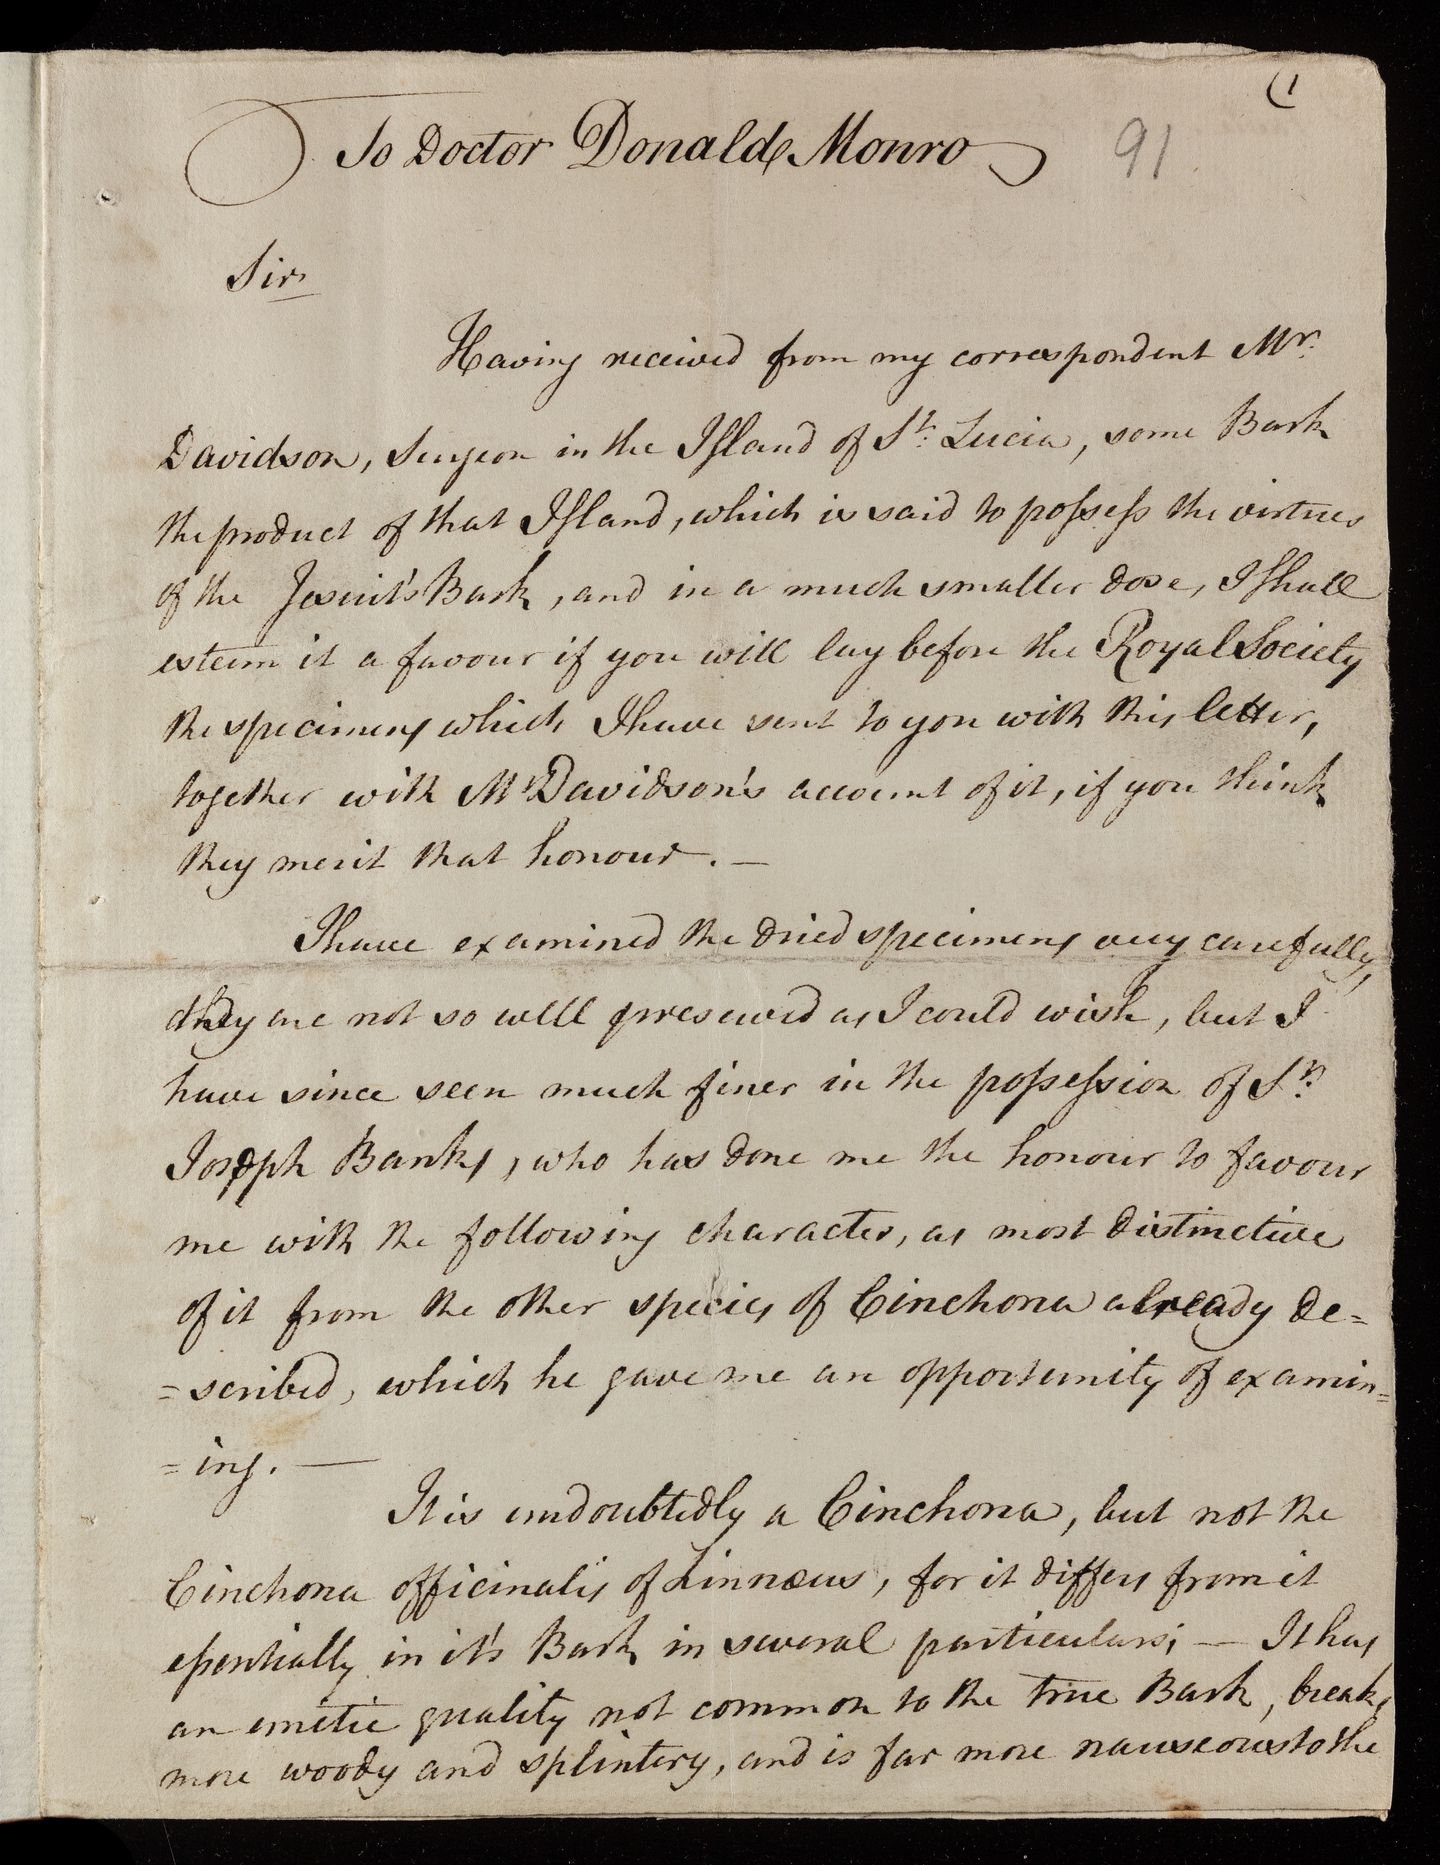 (1
To Doctor Donald Monro
91
Sir
Having received from my correspondent Mr.
Davidson, Surgeon in the Island of St. Lucia, some Bark
the product of that Island, which is said to possess the virtues
of the Jesuit's Bark, and in a much smaller dose, I shall
esteem it a favour if you will lay before the Royal Society
the specimens which I have sent to you with this letter,
together with Mr Davidson's account of it, if you think
they merit that honour. —
I have examined the dried specimens very carefully,
they are not so well preserved as I could wish, but I
have since seen much finer in the possession of Sr.
Joseph Banks, who has done me the honour to favour
me with the following character, as most distinctive
of it from the other species of Cinchona already de=
=scribed, which he gave me an opportunity of examin=
=ing. —
It is undoubtedly a Cinchona, but not the
Cinchona officinalis of Linnæus, for it differs from it
essentially in it's Bark in several particulars; — It has
an emetic quality not common to the true Bark, breaks
more woody and splintery, and is far more nauseous to the